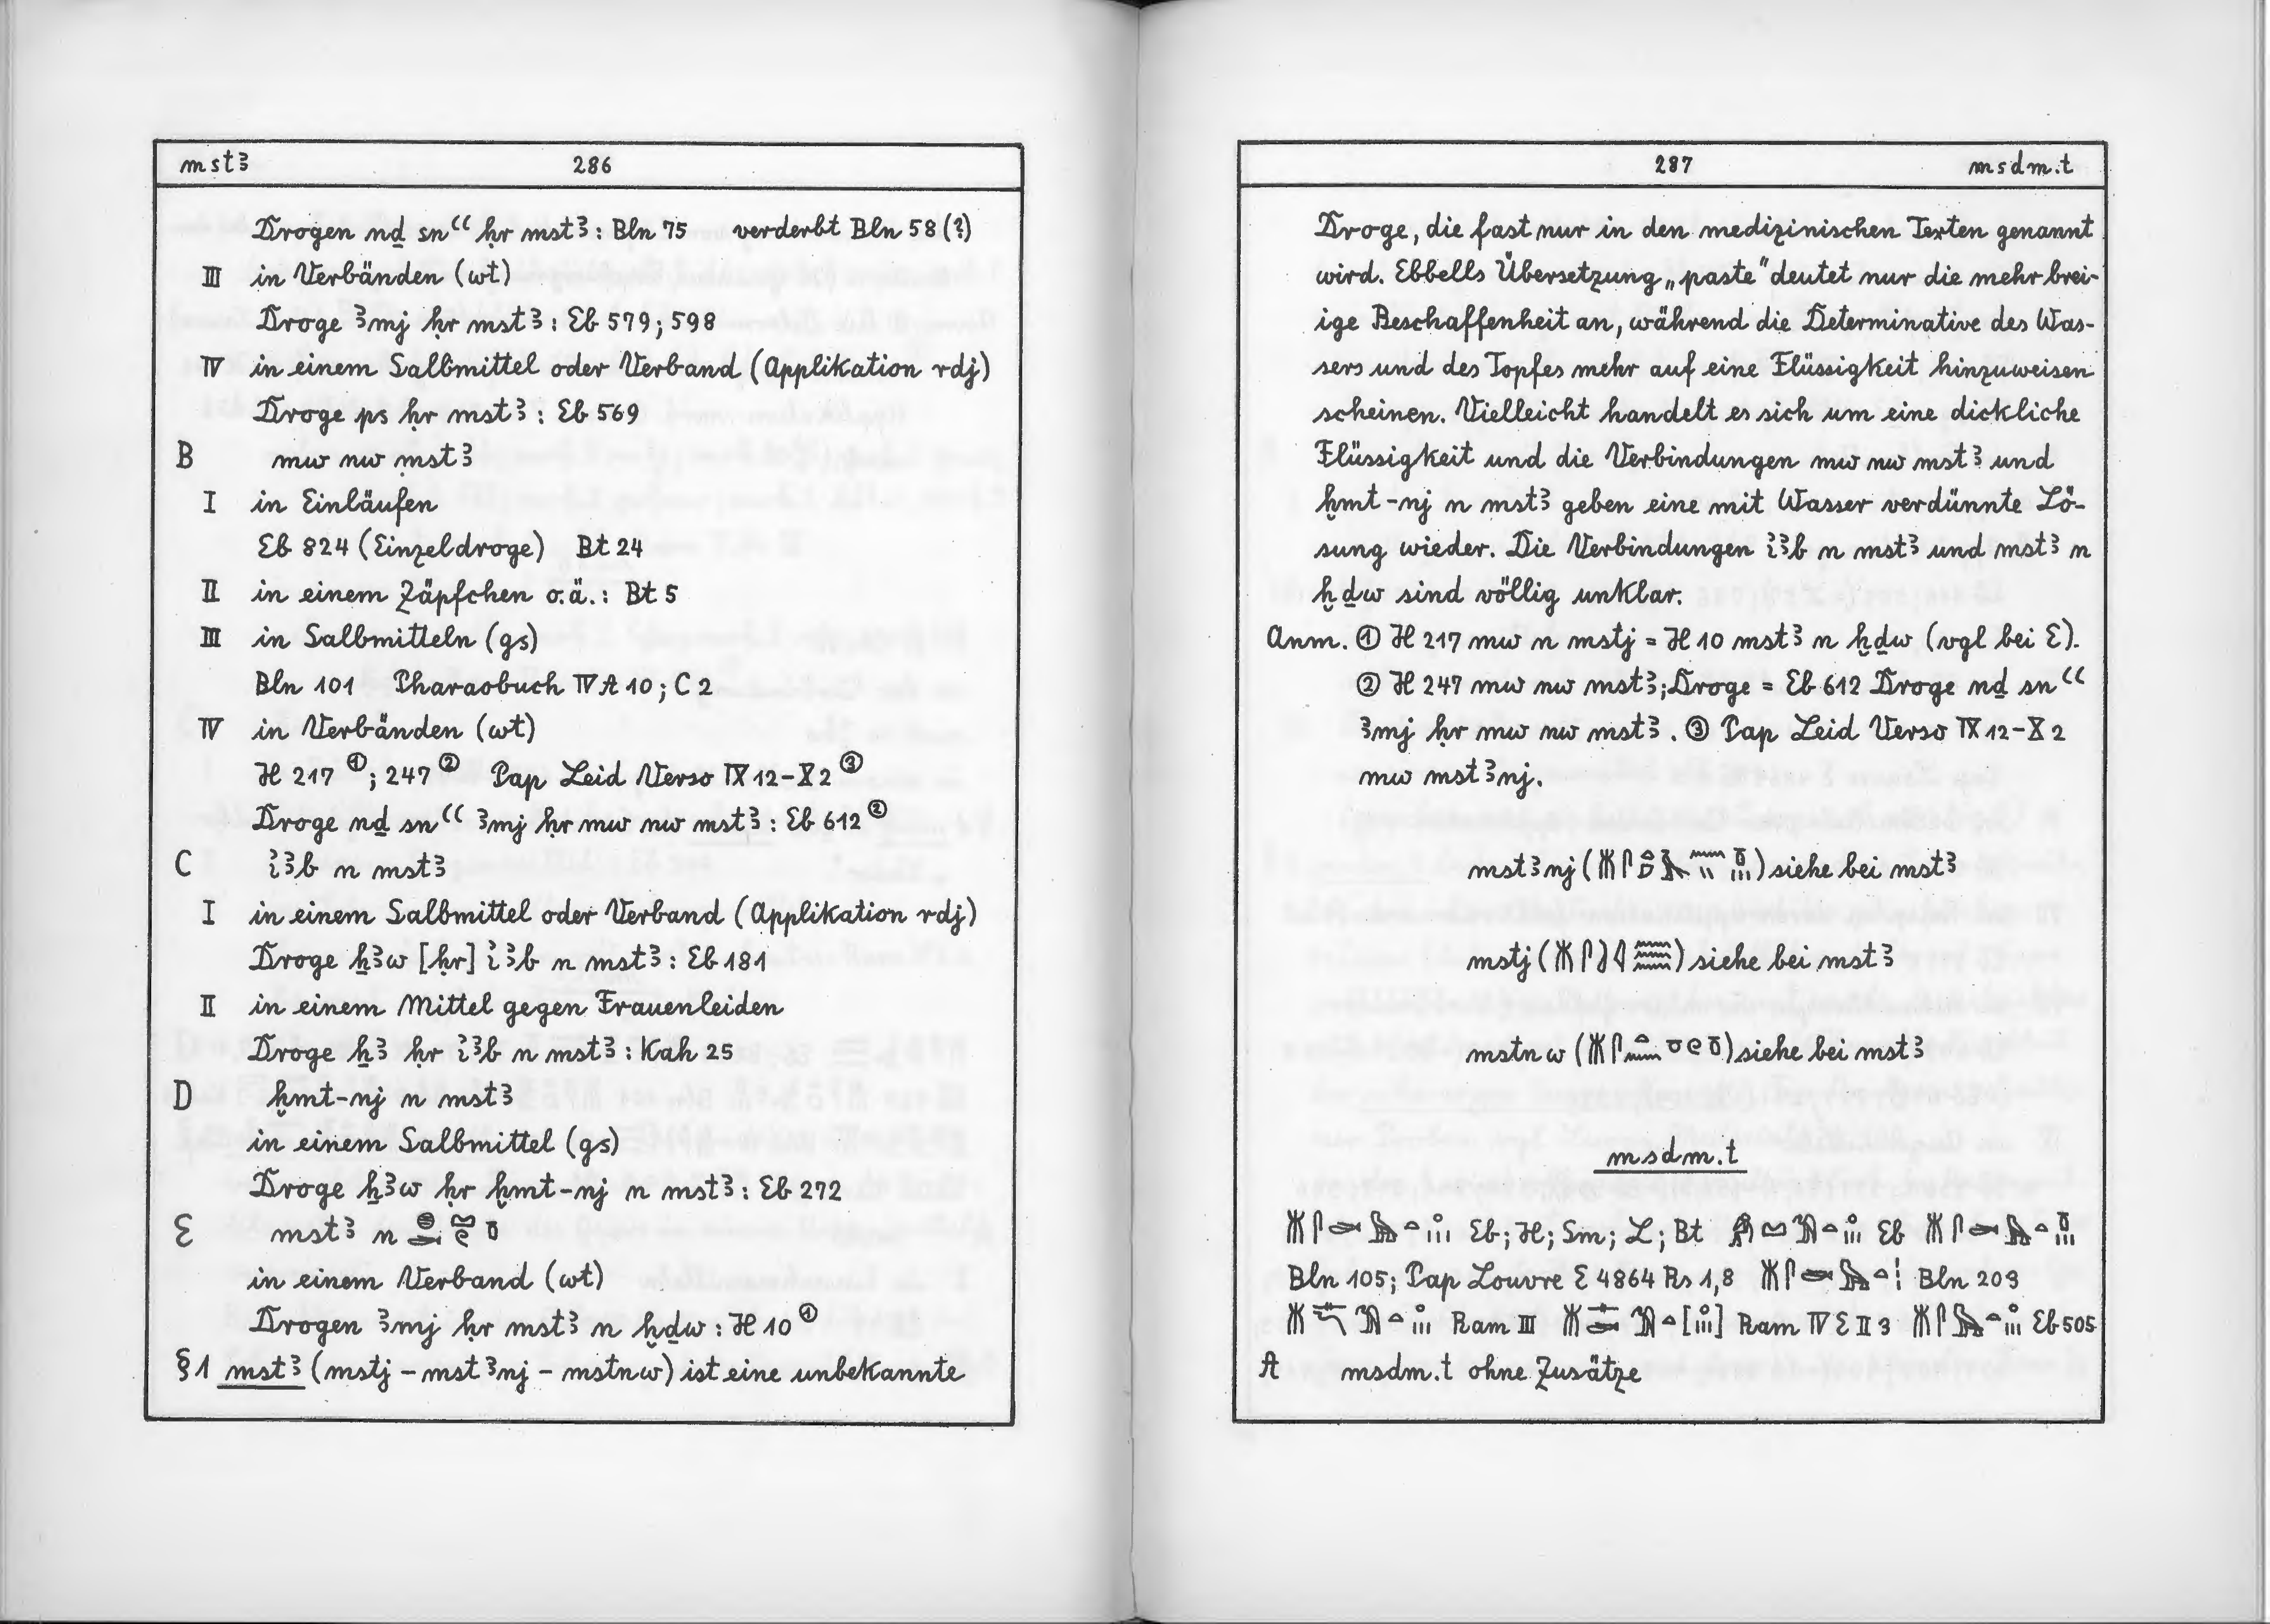 mstꜣ 286
Drogen nḏ snꜥꜥ ḥr mstꜣ : Bln 75 verderbt Bln 58 (?)
III in Verbänden (wt)
Droge ꜣmj ḥr mstꜣ : Eb 579; 598
IV in einem Salbmittel oder Verband (Applikation rdj)
Droge ps ḥr mstꜣ : Eb 569
B mw nw mstꜣ
I in Einläufen
Eb 824 (Einzeldroge) Bt 24
II in einem Zäpfchen o.ä.: Bt 5
III in Salbmitteln (gs)
Bln 101 Pharaobuch IV A 10; C 2
IV in Verbänden (wt)
H 217 ①; 247 ② Pap Leid Verso IX 12-X 2 ③
Droge nḏ snꜥꜥ ꜣmj ḥr mw nw mstꜣ : Eb 612 ②
C iꜣꜣb n mstꜣ
I in einem Salbmittel oder Verband (Applikation rdj)
Droge ẖꜣw [ḥr] iꜣꜣb n mstꜣ : Eb 181
II in einem Mittel gegen Frauenleiden
Droge ẖꜣ ḥr iꜣꜣb n mstꜣ : Kah 25
D ḫmt-nj n mstꜣ
in einem Salbmittel (gs)
Droge ẖꜣw ḥr ḫmt-nj n mstꜣ : Eb 272
E mstꜣ n
in einem Verband (wt)
Drogen ꜣmj ḥr mstꜣ n ḫḏw : H 10 ①
§1 mstꜣ (mstj - mstꜣnj - mstnw) ist eine unbekannte
287 msdm.t
Droge, die fast nur in den medizinischen Texten genannt
wird. Ebbells Übersetzung „paste" deutet nur die mehr brei-
ige Beschaffenheit an, während die Determinative des Was-
sers und des Topfes mehr auf eine Flüssigkeit hinzuweisen
scheinen. Vielleicht handelt es sich um eine dickliche
Flüssigkeit und die Verbindungen mw nw mstꜣ und
ḫmt-nj n mstꜣ geben eine mit Wasser verdünnte Lö-
sung wieder. Die Verbindungen iꜣꜣb n mstꜣ und mstꜣ n
ḫḏw sind völlig unklar.
Anm. ① H 217 mw n mstj = H 10 mstꜣ n ḫḏw (vgl bei E).
② H 247 mw nw mstꜣ; Droge = Eb 612 Droge nḏ snꜥꜥ
ꜣmj ḥr mw nw mstꜣ. ③ Pap Leid Verso IX 12-X 2
mw mstꜣnj.
mstꜣnj ( ) siehe bei mstꜣ
mstj ( ) siehe bei mstꜣ
mstnw ( ) siehe bei mstꜣ
msdm.t
Eb; H; Sm; L; Bt Eb
Bln 105; Pap Louvre E 4864 Rs 1,8 Bln 209
Ram III Ram IV E II 3 Eb 505
A msdm.t ohne Zusätze